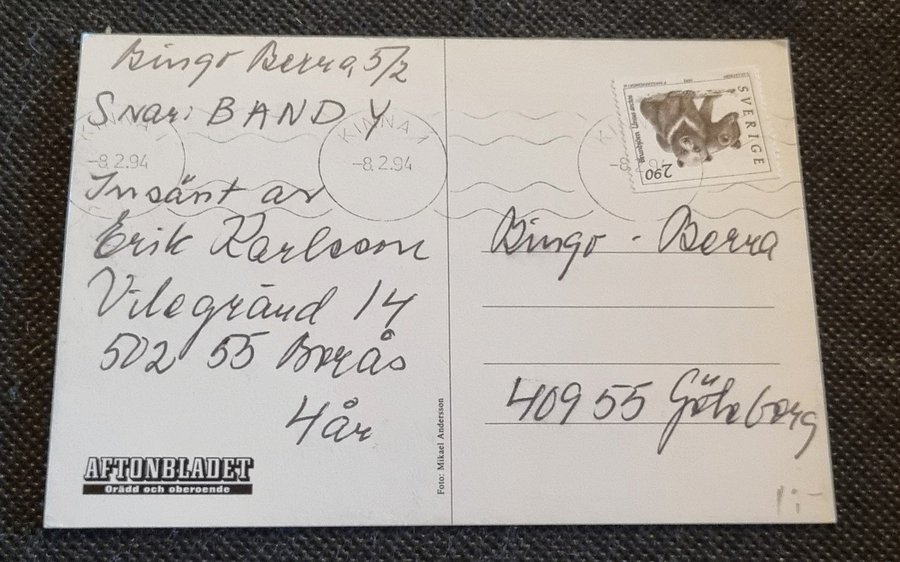 Bingo Berra 5/2
Svar: BANDY
Insänt av
Erik Karlsson
Vilegränd 14
502 55 Borås
4 år
AFTONBLADET
Orädd och oberoende
Foto: Mikael Andersson
KINNA 1
-8.2.94
KINNA 1
-8.2.94
SVERIGE
Brunbjörn Ursus arctos
2.90
Bingo - Berra
409 55 Göteborg
1:-